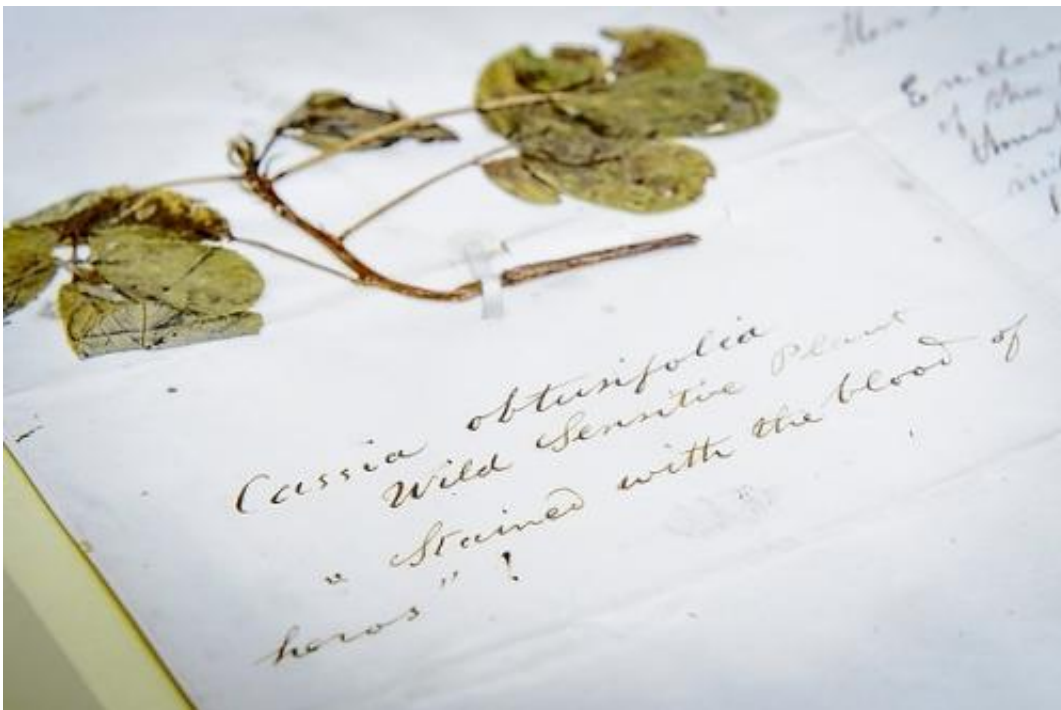 Cassia obtusifolia
Wild Sensitive Plant
"Stained with the blood of
heros"!
of the